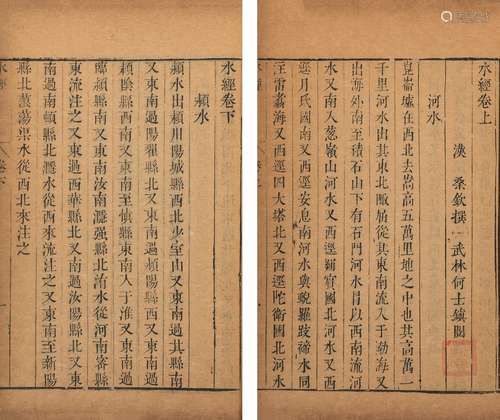 水經卷上
漢 桑欽撰 武林何士鎮閱
河水
崑崙墟在西北去嵩高五萬里地之中也其高萬一
千里河水出其東北陬屈從其東南流入于渤海又
出海外南至積石山下有石門河水冒以西南流河
水又南入葱嶺山河水又西逕罽賓國北河水又西
逕月氏國南又西逕安息南河水與蜺羅跂禘水同
注雷翥海又西逕四大塔北又西逕陀衛國北河水
水經卷下
頴水
頴水出頴川陽城縣西北少室山又東南過其縣南
又東南過陽翟縣北又東南過頴陽縣西又東南過
頴陰縣西南又東南至慎縣東南入于淮又東南過
臨頴縣南又東南汝南㶏強縣北洧水從河南密縣
東流注之又東過西華縣北又南過汝陽縣北又東
南過南頓縣北㶏水從西來流注之又東南至新陽
縣北蒗蕩渠水從西北來注之